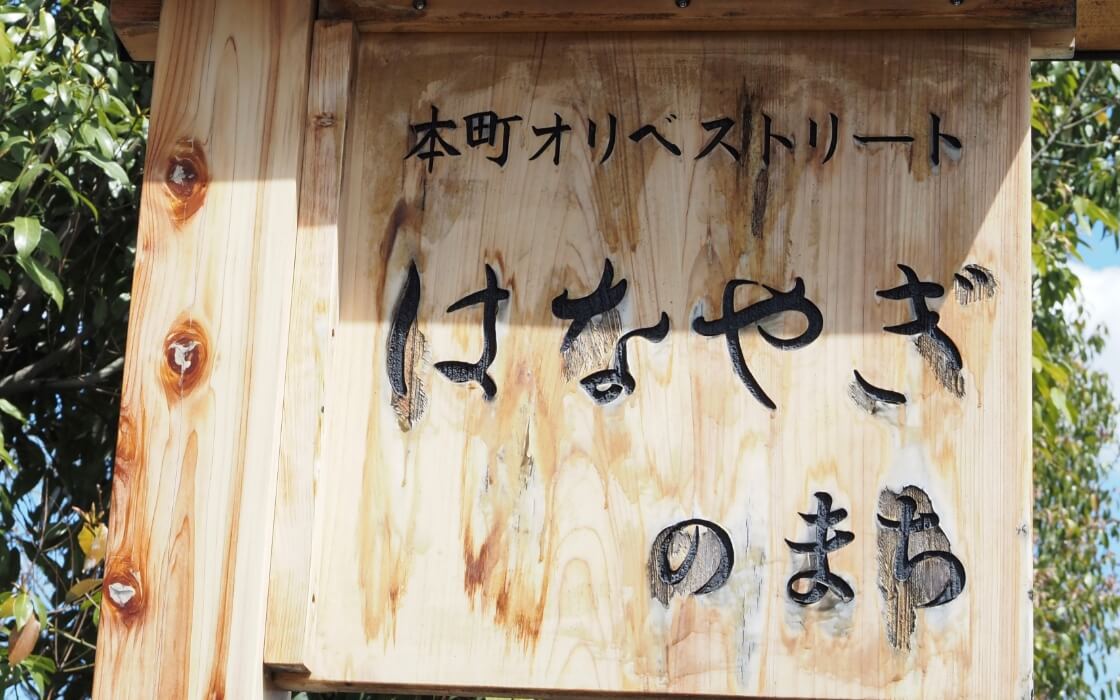 本町オリベストリート
はなやぎ
のまち